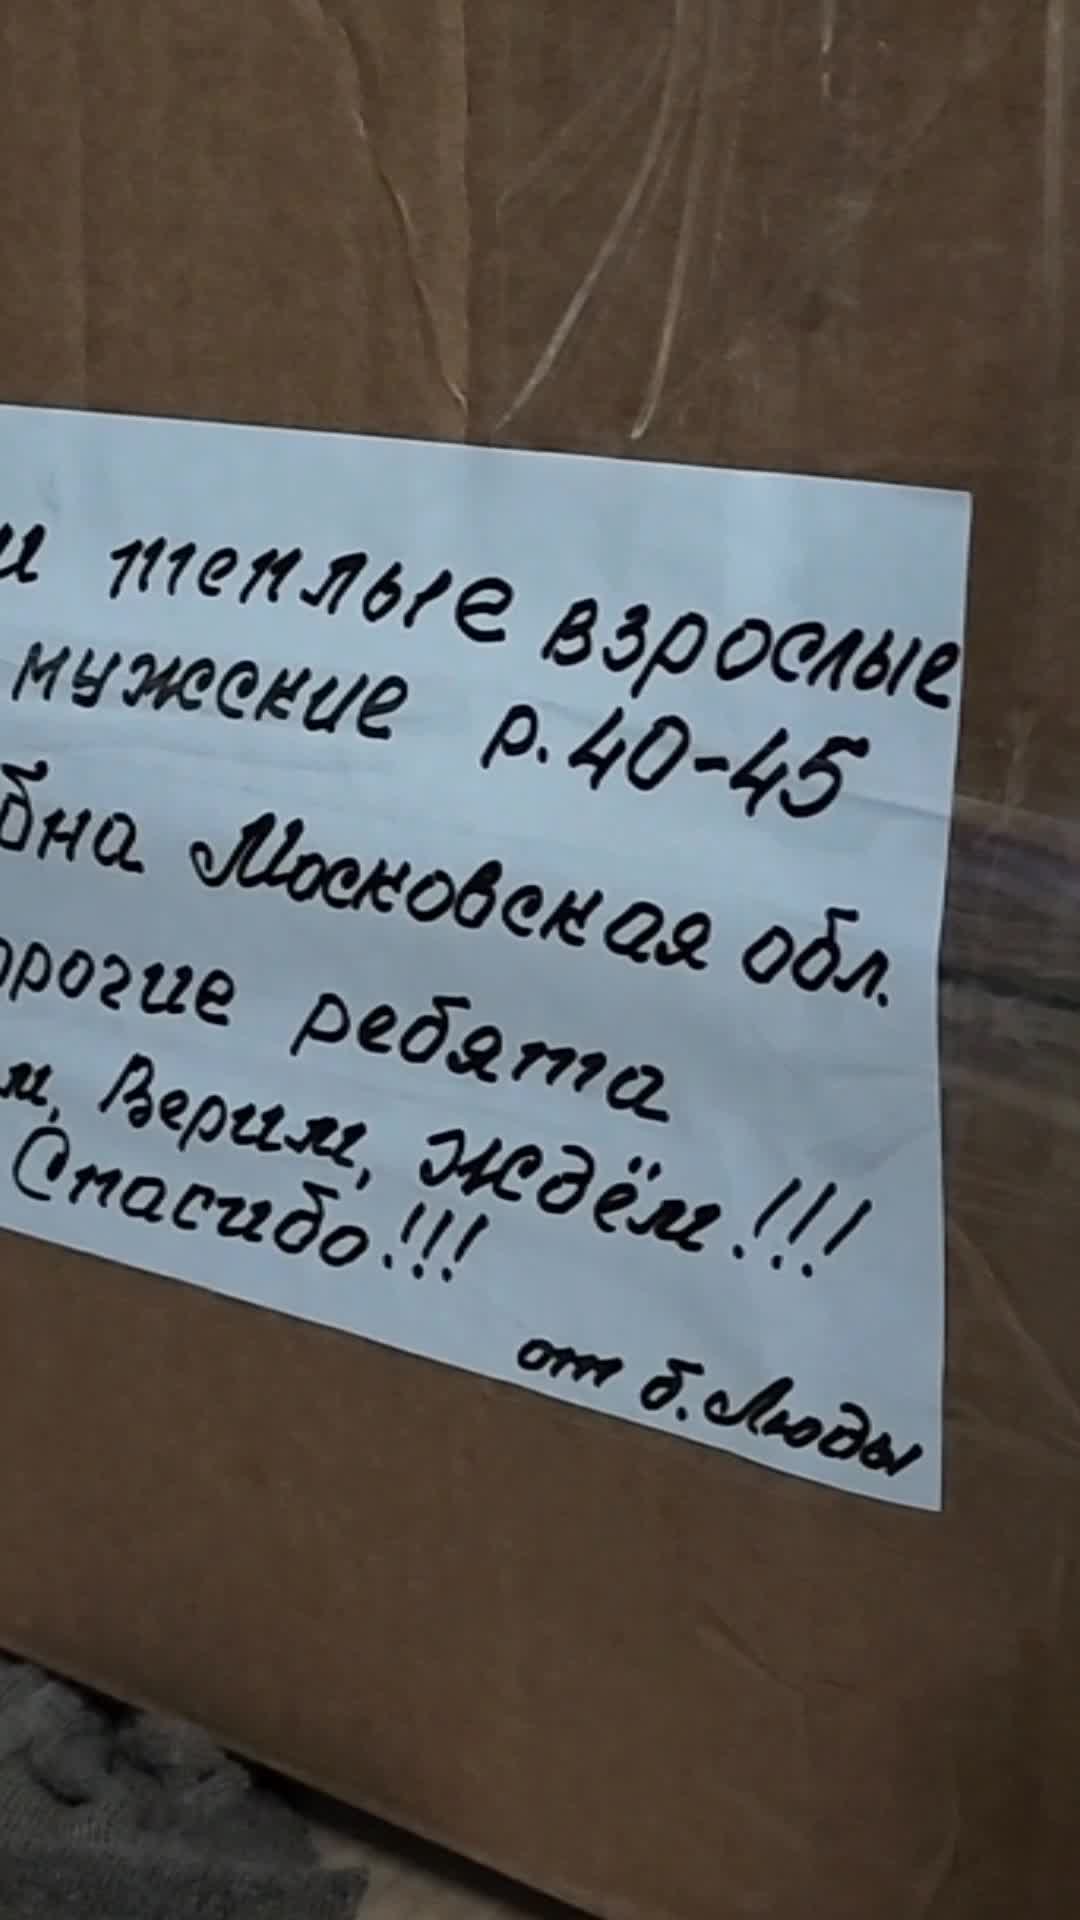 и теплые взрослые
мужские р. 40-45
бна Московская обл.
орогие ребята
м, Верим, Ждём!!!
Спасибо!!!
от б. Люды